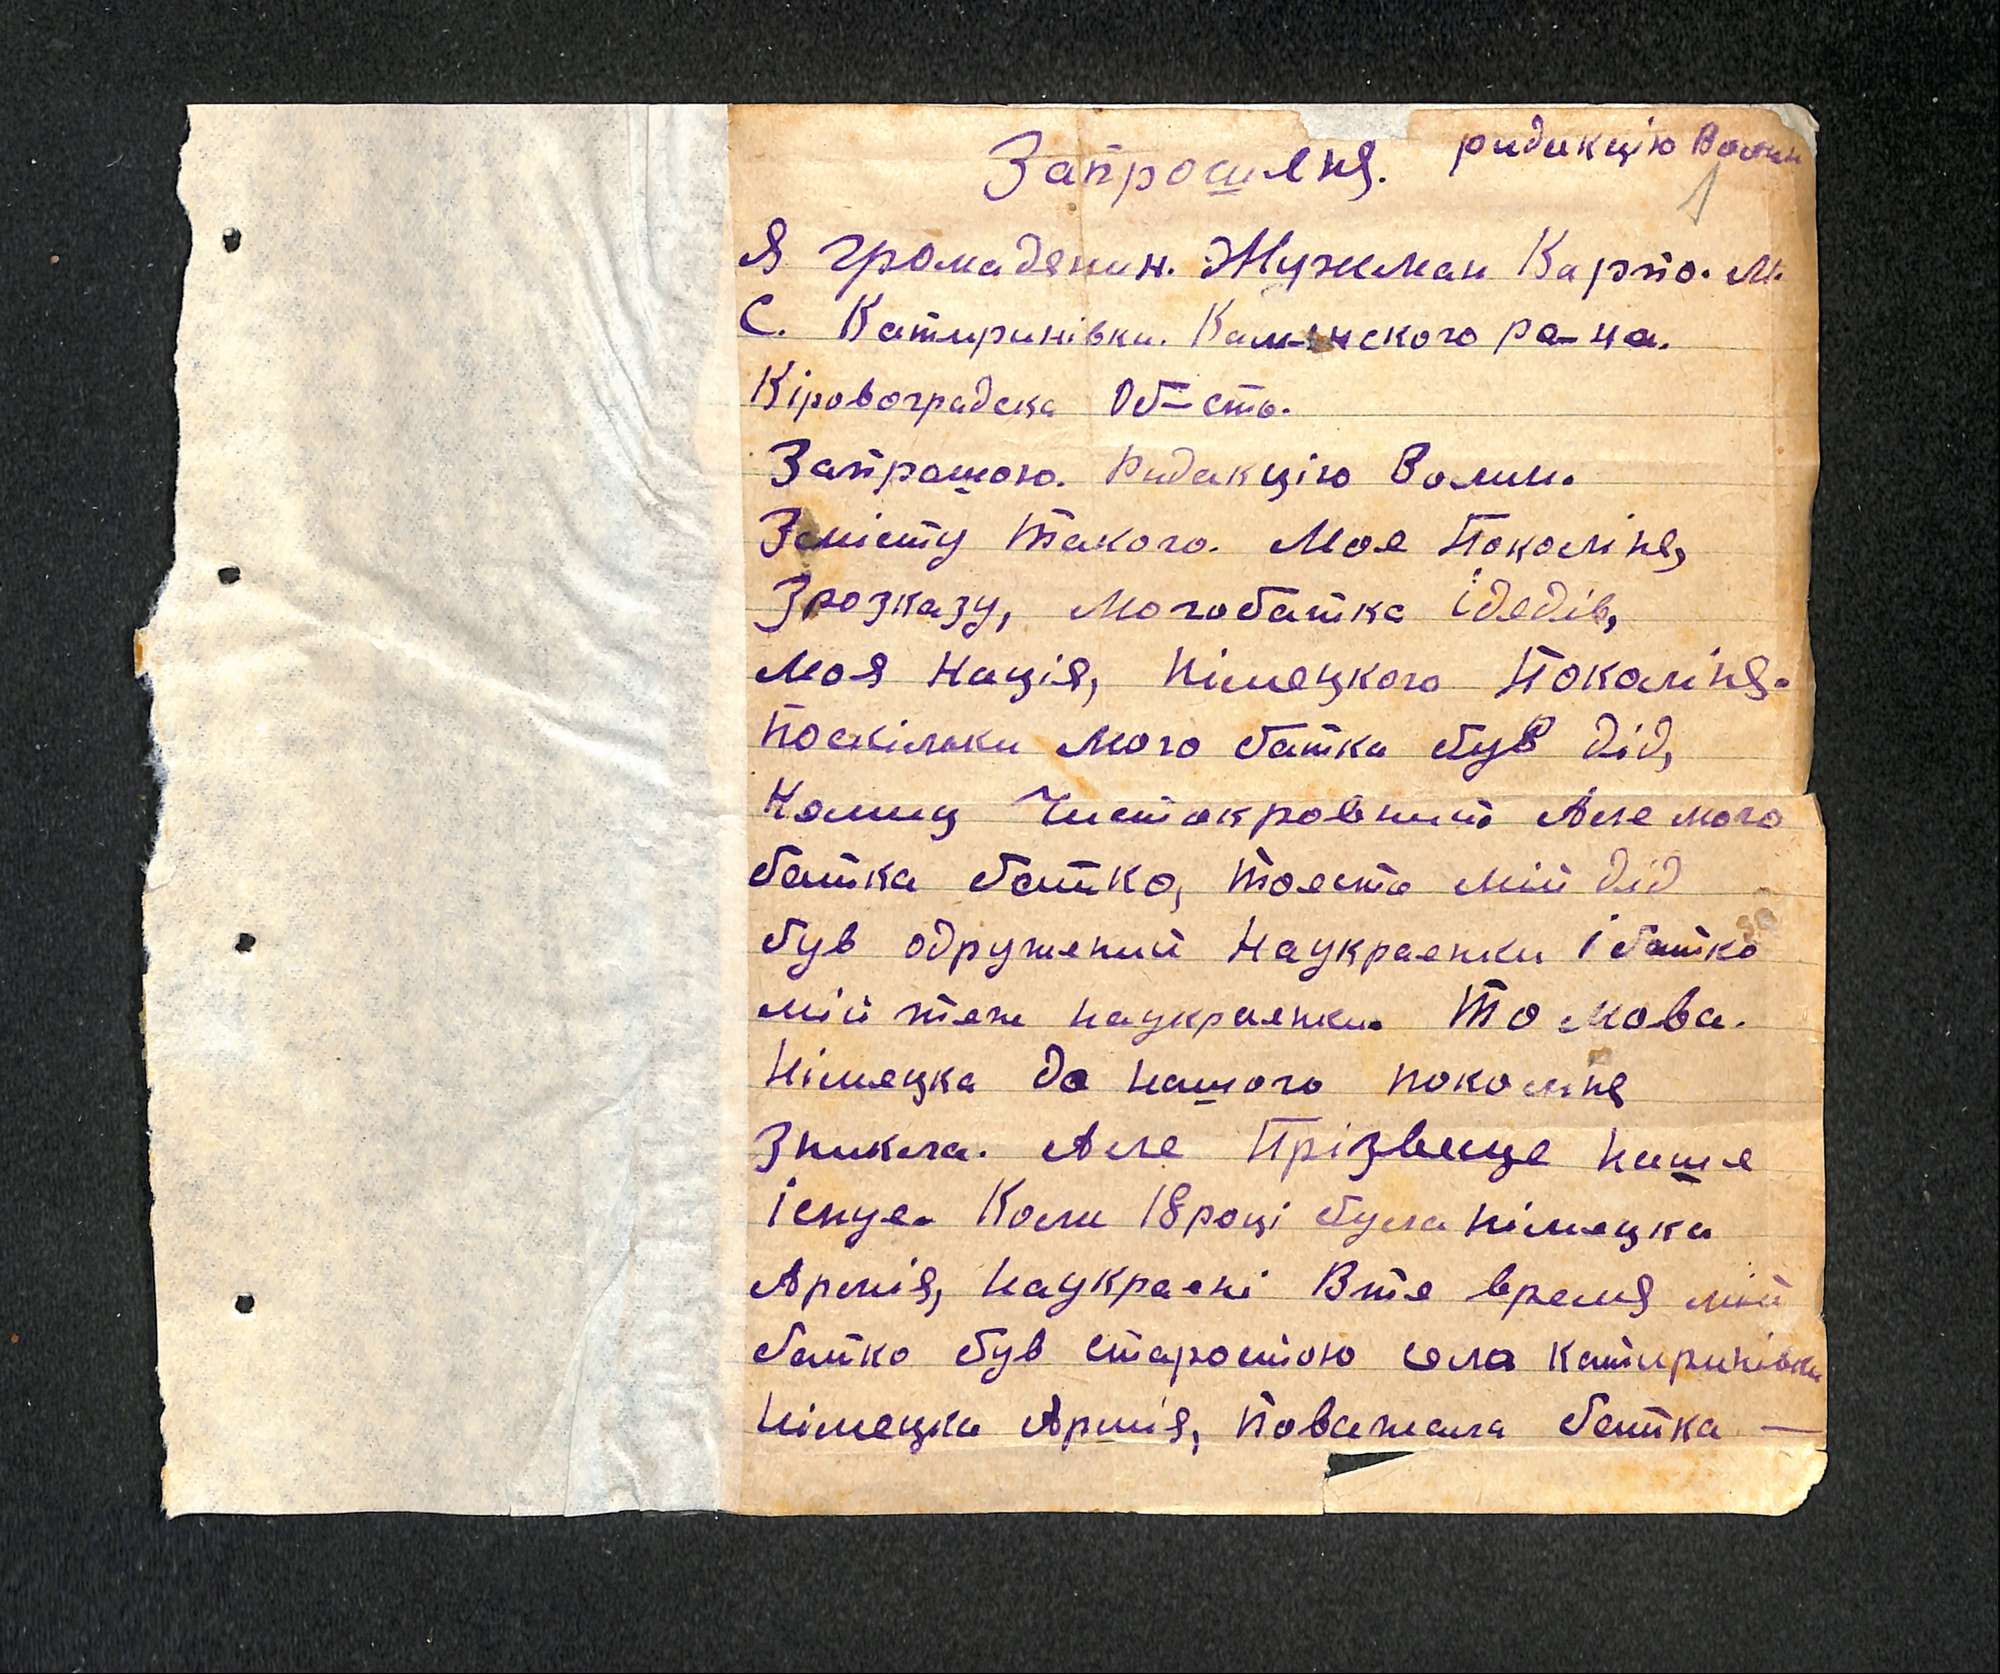 Запрошеня. ридакцію Волин
1
Я громадянин. Мужиман Карпо. М.
С. Катиринівки. Камянского ра-на.
Кіровоградска Об-сть.
Запрошою. Ридакцію Волин.
Змісту Такого. Мое Поколіня,
Зрозказу, Могобатка ідядів,
Моя Нація, Німецкого Поколіня.
Поскільки Мого батка був дід,
Немиц Чистокровний Але мого
батка батко, тоесть мій дід
був одружений Наукраенки і батко
мій теж наукраенки. То мова.
Німецка до нашого поколіня
Зникла. Але Прізвище наше
існуе. Коли 18році була німецка
Армія, Наукраені Втя время мій
батко був старостою села катиринівки
Німецка Армія, Поважала батка —